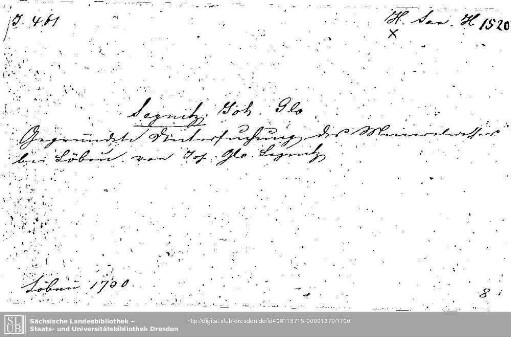 J. 461
H. Sax. H 1520
x
Segnitz, Joh. Glo
Gegründete Untersuchung des Mineralwassers
bei Löbau von Joh. Glo. Segnitz
Löbau 1700
8
SLUB
Sächsische Landesbibliothek –
Staats- und Universitätsbibliothek Dresden